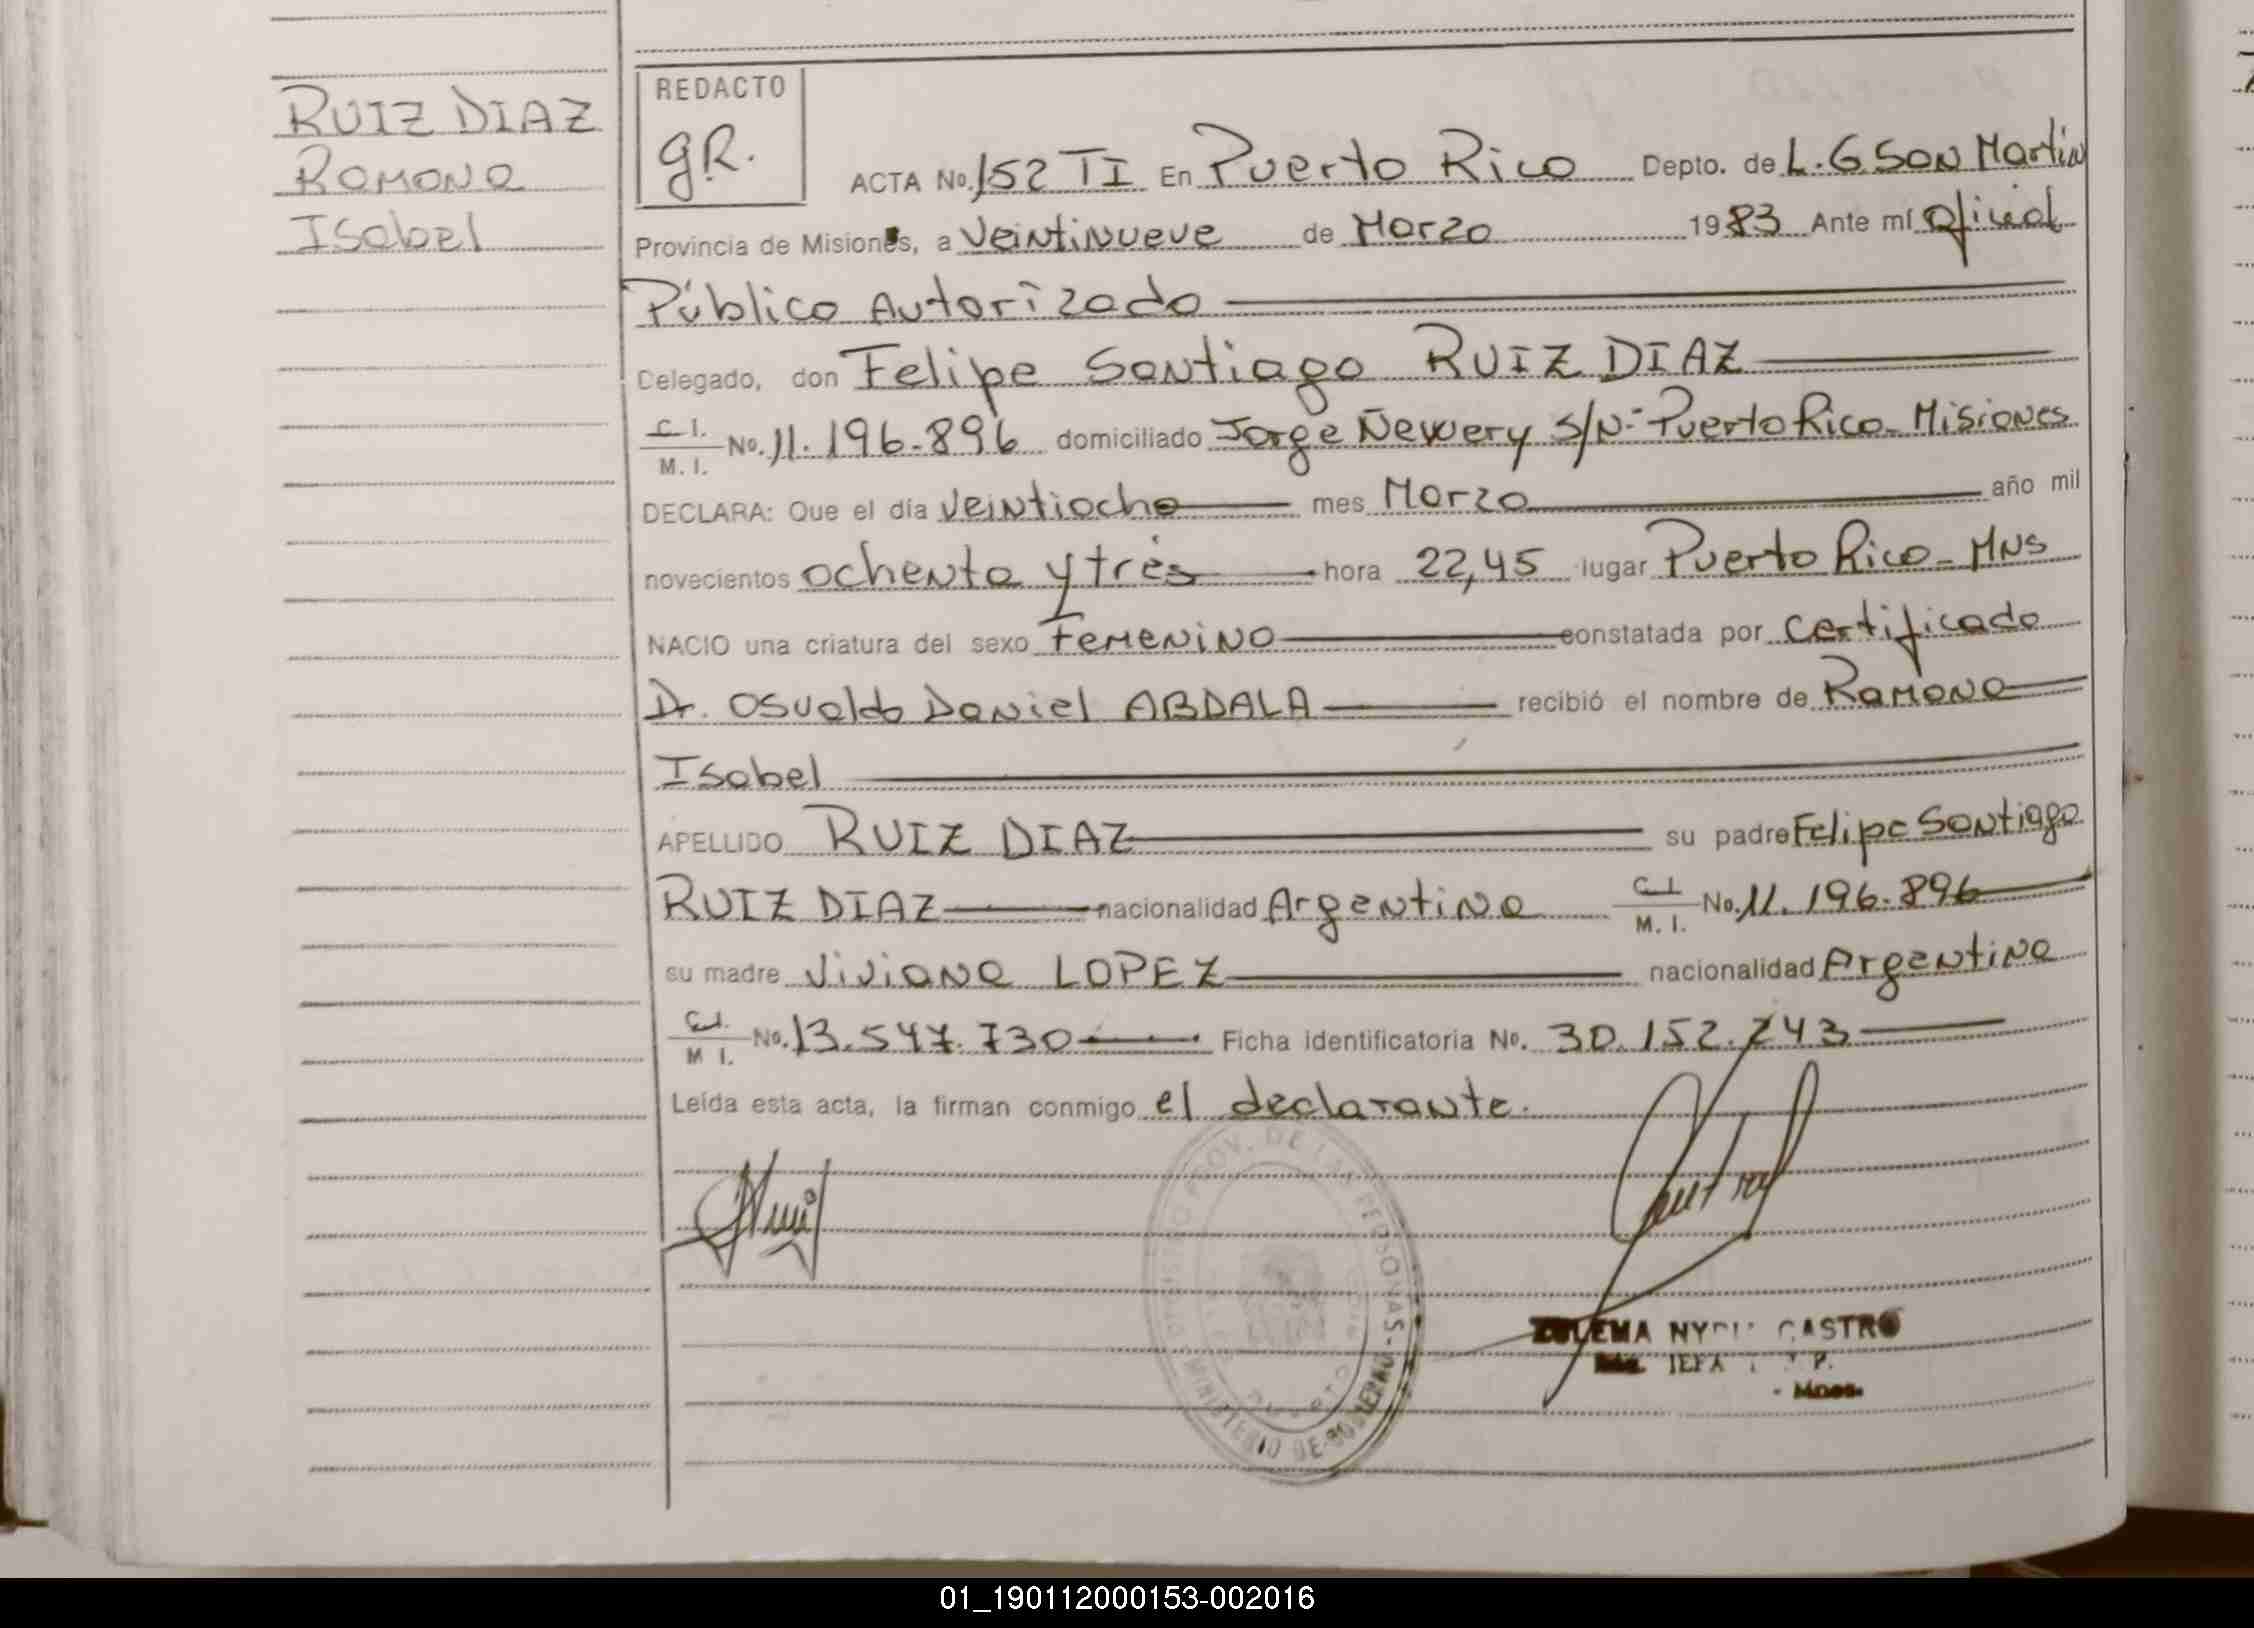 RUIZ DIAZ
Ramona
Isabel
REDACTO
g.R.
ACTA No. 152 TI En Puerto Rico Depto. de L.G San Martin
Provincia de Misiones, a veintinueve de Marzo 1983 Ante mí Oficial
Público Autorizado
Delegado, don Felipe Santiago RUIZ DIAZ
C.I. M.I. No. 11.196.896 domiciliado Jorge Newery S/N- Puerto Rico- Misiones
DECLARA: Que el día veintiocho mes Marzo año mil
novecientos ochenta y tres hora 22,45 lugar Puerto Rico-Mns
NACIO una criatura del sexo Femenino constatada por Certificado
Dr. Osvaldo Daniel ABDALA recibió el nombre de Ramona
Isabel
APELLIDO RUIZ DIAZ su padre Felipe Santiago
RUIZ DIAZ nacionalidad Argentina C.I. M.I. No. 11.196.896
su madre Viviana LOPEZ nacionalidad Argentina
C.I. M I. No. 13.547.730 Ficha identificatoria No. 30.152.243
Leída esta acta, la firman conmigo el declarante.
PROV. DE LAS PERSONAS - MINISTERIO DE GOBIERNO
CASTRO
01_190112000153-002016